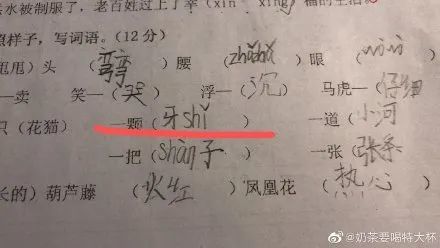 水被制服了，老百姓过上了幸（xìn xìng）福的生活
照样子，写词语。(12分)
甩甩）头 （弯弯）腰 （zhǎzhǎ）眼
一卖 笑—（哭） 浮—（沉） 马虎—（仔细
只（花猫） 一颗（牙shǐ） 一道（小河
一把（shàn子） 一张（张条
长的）葫芦藤 （火红）凤凰花 （热心
@奶茶要喝特大杯